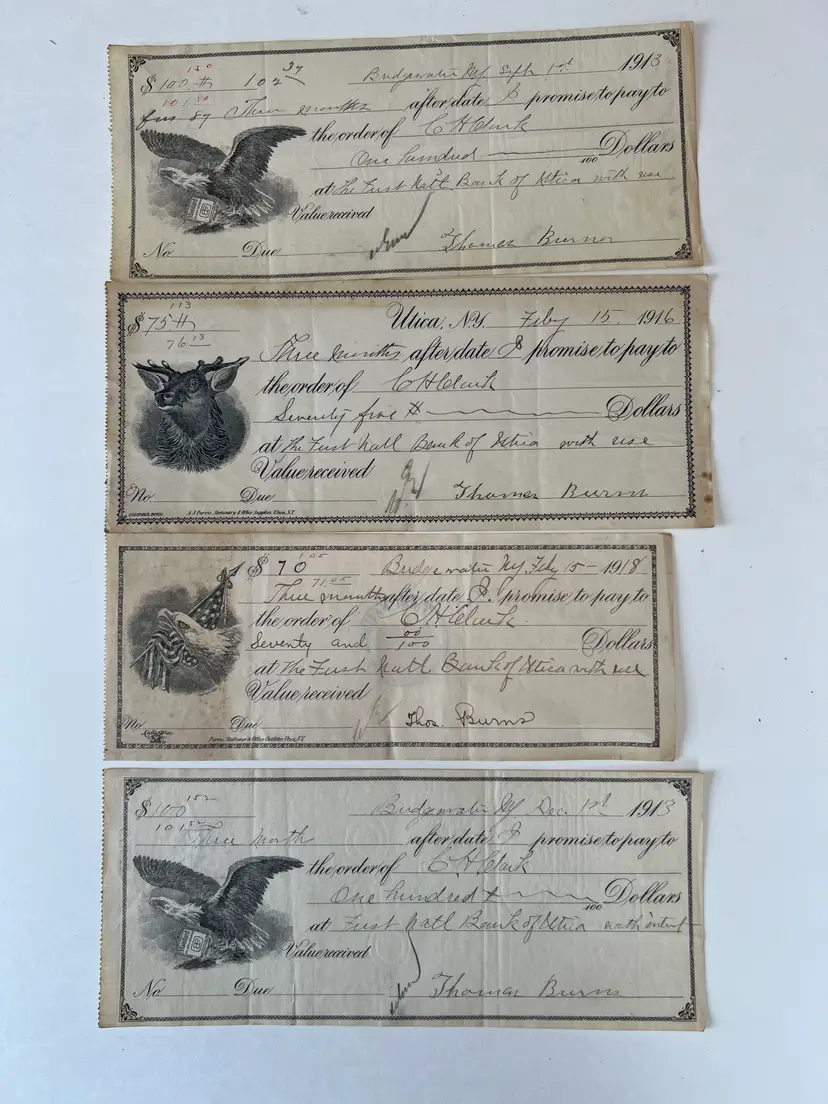 $100.# 102 37
150
Bridgewater NY. Sept 1st 1913
101 50
87 Three months after date I promise to pay to
the order of C H Clark
One hundred 100 Dollars
at The First Nat'l Bank of Utica with use
Value received
No. Due Thomas Burns
113
$75.#
Utica, N.Y. Feby 15. 1916
76 13
Three months after date I promise to pay to
the order of C H Clark
Seventy five # Dollars
at The First Natl Bank of Utica with use
Value received
No. Due Thomas Burns
1.05
$70 Bridgewater NY Feby 15 - 1918
71.05
Three months after date I promise to pay to
the order of C. H. Clark
Seventy and 00/100 Dollars
at The First Natl Bank of Utica with use
Value received
No. Due Thos. Burns
152
$100 Bridgewater NY Dec. 1st 1913
101 52
Three month after date I promise to pay to
the order of C. H. Clark
One hundred 100 Dollars
at First Natl Bank of Utica with
Value received
No. Due Thomas Burns